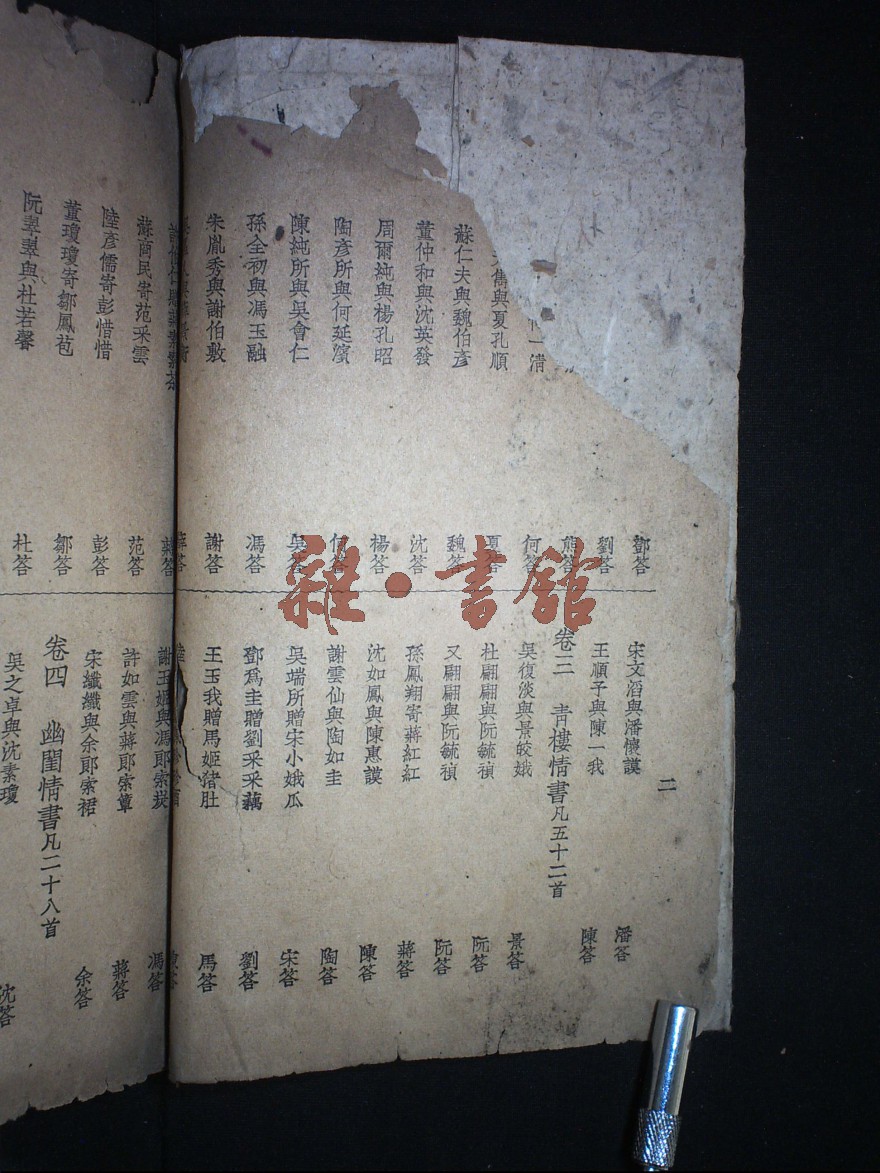 二
鄧答
劉答
熊答
一清 何答
與夏孔順 夏答
蘇仁夫與魏伯彥 魏答
董仲和與沈英發 沈答
周爾純與楊孔昭 楊答
陶彥所與何延濱 何答
陳純所與吳會仁 吳答
孫全初與馮玉融 馮答
朱胤秀與謝伯敷 謝答
宋文滔與潘懷謨 潘答
王順予與陳一我 陳答
卷三 青樓情書凡五十二首
吳復淡與景皎娥 景答
杜翩翩與阮毓禎 阮答
又翩翩與阮毓禎 阮答
孫鳳翔寄蔣紅紅 蔣答
沈如鳳與陳惠謨 陳答
謝雲仙與陶如圭 陶答
吳端所贈宋小娥瓜 宋答
鄧爲圭贈劉采采藕 劉答
王玉我贈馬姬猪肚 馬答
蘇商民寄范采雲 范答
陸彥儒寄彭惜惜 彭答
董瓊瓊寄鄒鳳苞 鄒答
阮翠翠與杜若馨 杜答
謝玉姬與馮郎索炭 馮答
許如雲與蔣郎索簟 蔣答
宋纖纖與余郎索裙 余答
卷四 幽閨情書凡二十八首
吳之卓與沈素瓊 沈答
雜·書館